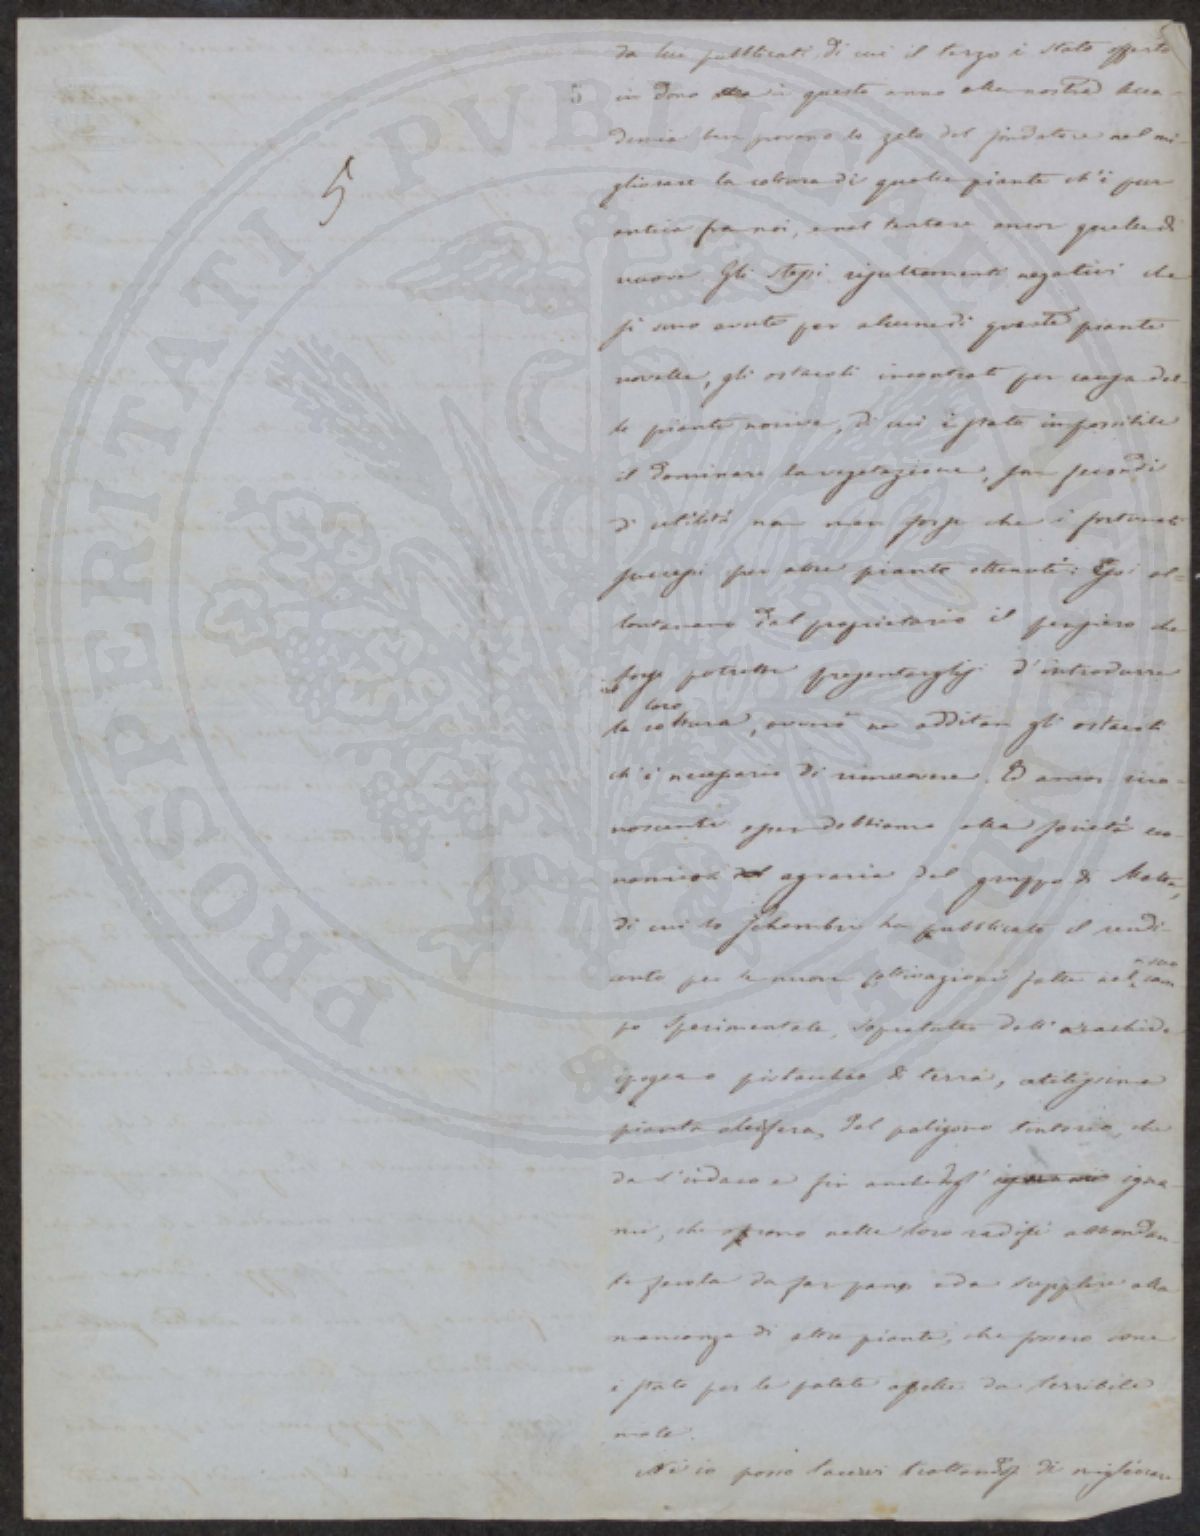 5
da lui pubblicati, di cui il terzo è stato offerto
in dono in questo anno alla nostra Acca-
demia ben provano lo zelo del fondatore nel mi-
gliorare la coltura di quelle piante ch'è pur
antica fra noi, e nel tentare ancor quelle di
nuove. Gli stessi risultamenti negativi che
si sono avuti per alcune di queste piante
novelle, gli ostacoli incontrati per causa del-
le piante nocive, di cui è stato impossibile
il dominare la vegetazione, son fecondi
di utilità non men forse che i fortunati
successi per altre piante ottenuti: Essi al-
lontanano dal proprietario il pensiero che
forse potrebbe presentarglisi d'introdurre
la loro coltura, ovvero ne additan gli ostacoli
ch'è necessario di rimuovere. E ancor rico-
noscenti esser dobbiamo alla società eco-
nomica agraria del gruppo di Malta,
di cui lo Schembri ha pubblicato il rendi-
conto per le nuove coltivazioni fatte nel suo cam-
po sperimentale, sopratutto dell'arachide
ipogea o pistacchio di terra, utilissima
pianta oleifera, del poligono tintorio, che
dà l'indaco e fin anche degl' igna-
mi, che offrono nelle loro radici abbondan-
te fecola da far pane e da supplire alla
mancanza di altre piante, che fossero come
è stato per le patate affette da terribile
male.
Nè io posso tacervi trattandosi di migliorare
PROSPERITATI PVBLICAE AVGENDAE